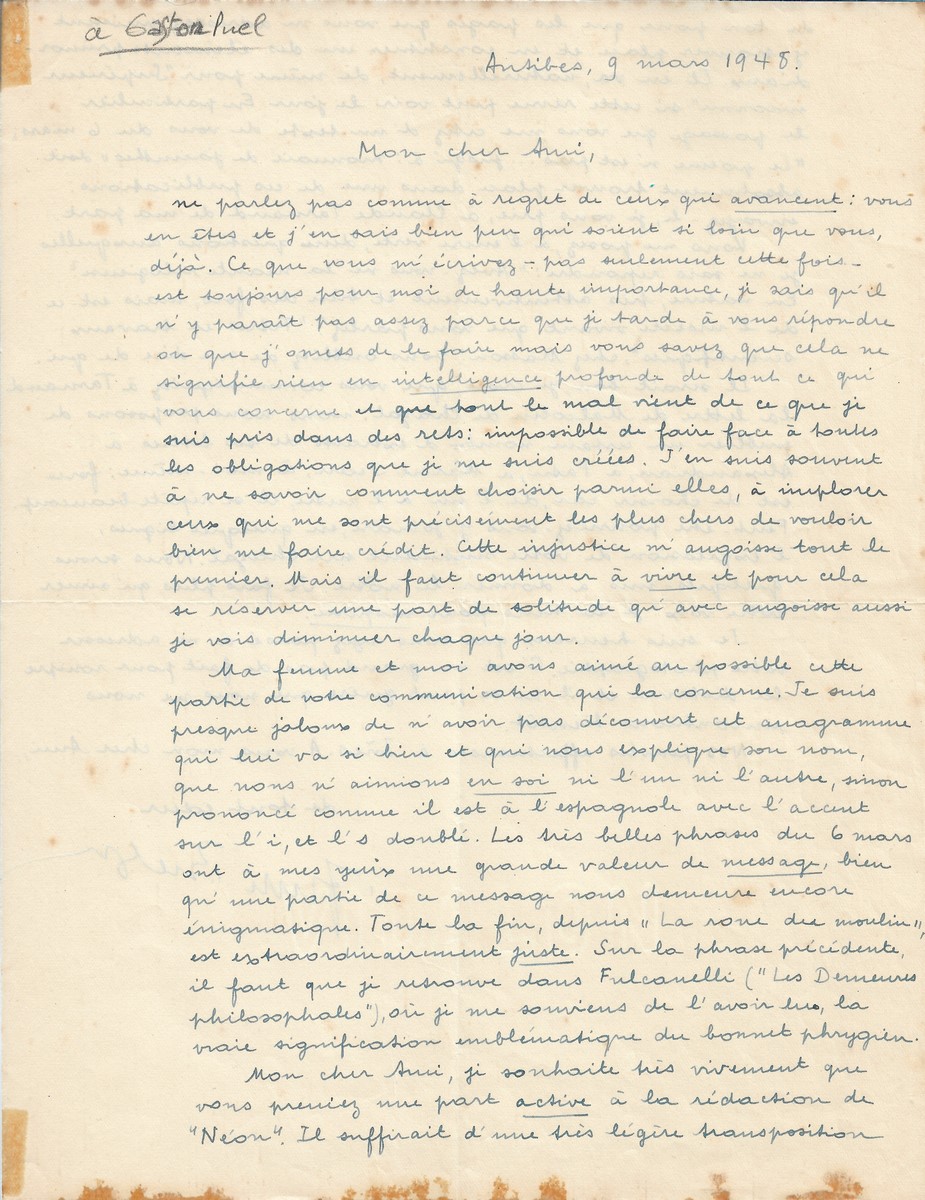 à Gaston Puel
Antibes, 9 mars 1948.
Mon cher Ami,
ne parlez pas comme à regret de ceux qui avancent : vous
en êtes et j'en sais bien peu qui soient si loin que vous,
déjà. Ce que vous m'écrivez – pas seulement cette fois –
est toujours pour moi de haute importance, je sais qu'il
n'y paraît pas assez parce que je tarde à vous répondre
ou que j'omets de le faire mais vous savez que cela ne
signifie rien en intelligence profonde de tout ce qui
vous concerne et que tout le mal vient de ce que je
suis pris dans des rets : impossible de faire face à toutes
les obligations que je me suis créées. J'en suis souvent
à ne savoir comment choisir parmi elles, à implorer
ceux qui me sont précisément les plus chers de vouloir
bien me faire crédit. Cette injustice m'angoisse tout le
premier. Mais il faut continuer à vivre et pour cela
se réserver une part de solitude qu'avec angoisse aussi
je vois diminuer chaque jour.
Ma femme et moi avons aimé au possible cette
partie de votre communication qui la concerne. Je suis
presque jaloux de n'avoir pas découvert cet anagramme
qui lui va si bien et qui nous explique son nom,
que nous n'aimions en soi ni l'un ni l'autre, sinon
prononcé comme il est à l'espagnole avec l'accent
sur l'i, et l's doublé. Les très belles phrases du 6 mars
ont à mes yeux une grande valeur de message, bien
qu'une partie de ce message nous demeure encore
énigmatique. Toute la fin, depuis "La roue du moulin",
est extraordinairement juste. Sur la phrase précédente,
il faut que je retrouve dans Fulcanelli ("Les Demeures
philosophales"), où je me souviens de l'avoir lue, la
vraie signification emblématique du bonnet phrygien.
Mon cher Ami, je souhaite très vivement que
vous preniez une part active à la rédaction de
"Néon". Il suffirait d'une très légère transposition